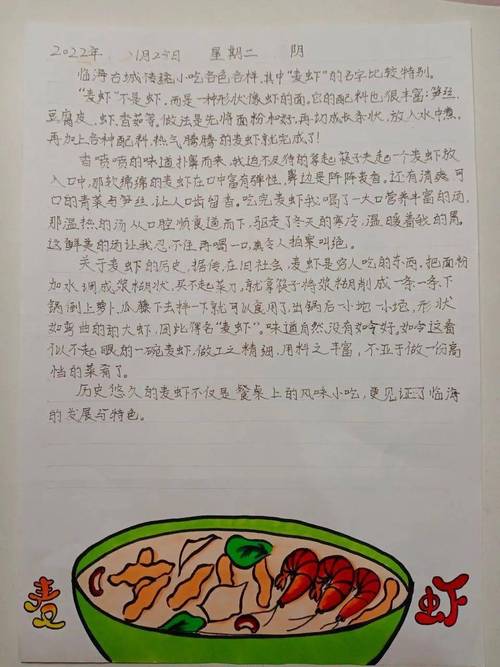 2022年 1月25日 星期二 阴
临海古城传统小吃各色各样，其中“麦虾”的名字比较特别。
“麦虾”不是虾，而是一种形状像虾的面。它的配料也很丰富：笋丝
豆腐皮、虾、香菇等，做法是先将面粉和好，再切成长条状，放入水中煮，
再加上各种配料，热气腾腾的麦虾就完成了！
香喷喷的味道扑鼻而来，我迫不及待的拿起筷子夹起一个麦虾放
入口中，那软绵绵的麦虾在口中富有弹性，鼻边是阵阵麦香。还有清爽可
口的青菜与笋丝，让人口齿留香。吃完麦虾，我喝了一大口营养丰富的汤，
那温热的汤从口腔顺食道而下，驱走了冬天的寒冷，温暖着我的胃。
这鲜美的汤让我忍不住再喝一口，真令人拍案叫绝。
关于麦虾的历史，据传，在旧社会，麦虾是穷人吃的东西，把面粉
加水调成浆糊状，买不起菜刀，就拿筷子将浆糊削成一条一条下
锅倒上萝卜、瓜藤下去拌一下就可以食用了，出锅后一小坨一小坨，形状
如弯曲的大虾，因此得名“麦虾”。味道自然没有如今好，如今这看
似不起眼的一碗麦虾，做工之精细，用料之丰富，不亚于做一份高
档的菜肴了。
历史悠久的麦虾不仅是餐桌上的风味小吃，更见证了临海
的发展与特色。
麦 虾